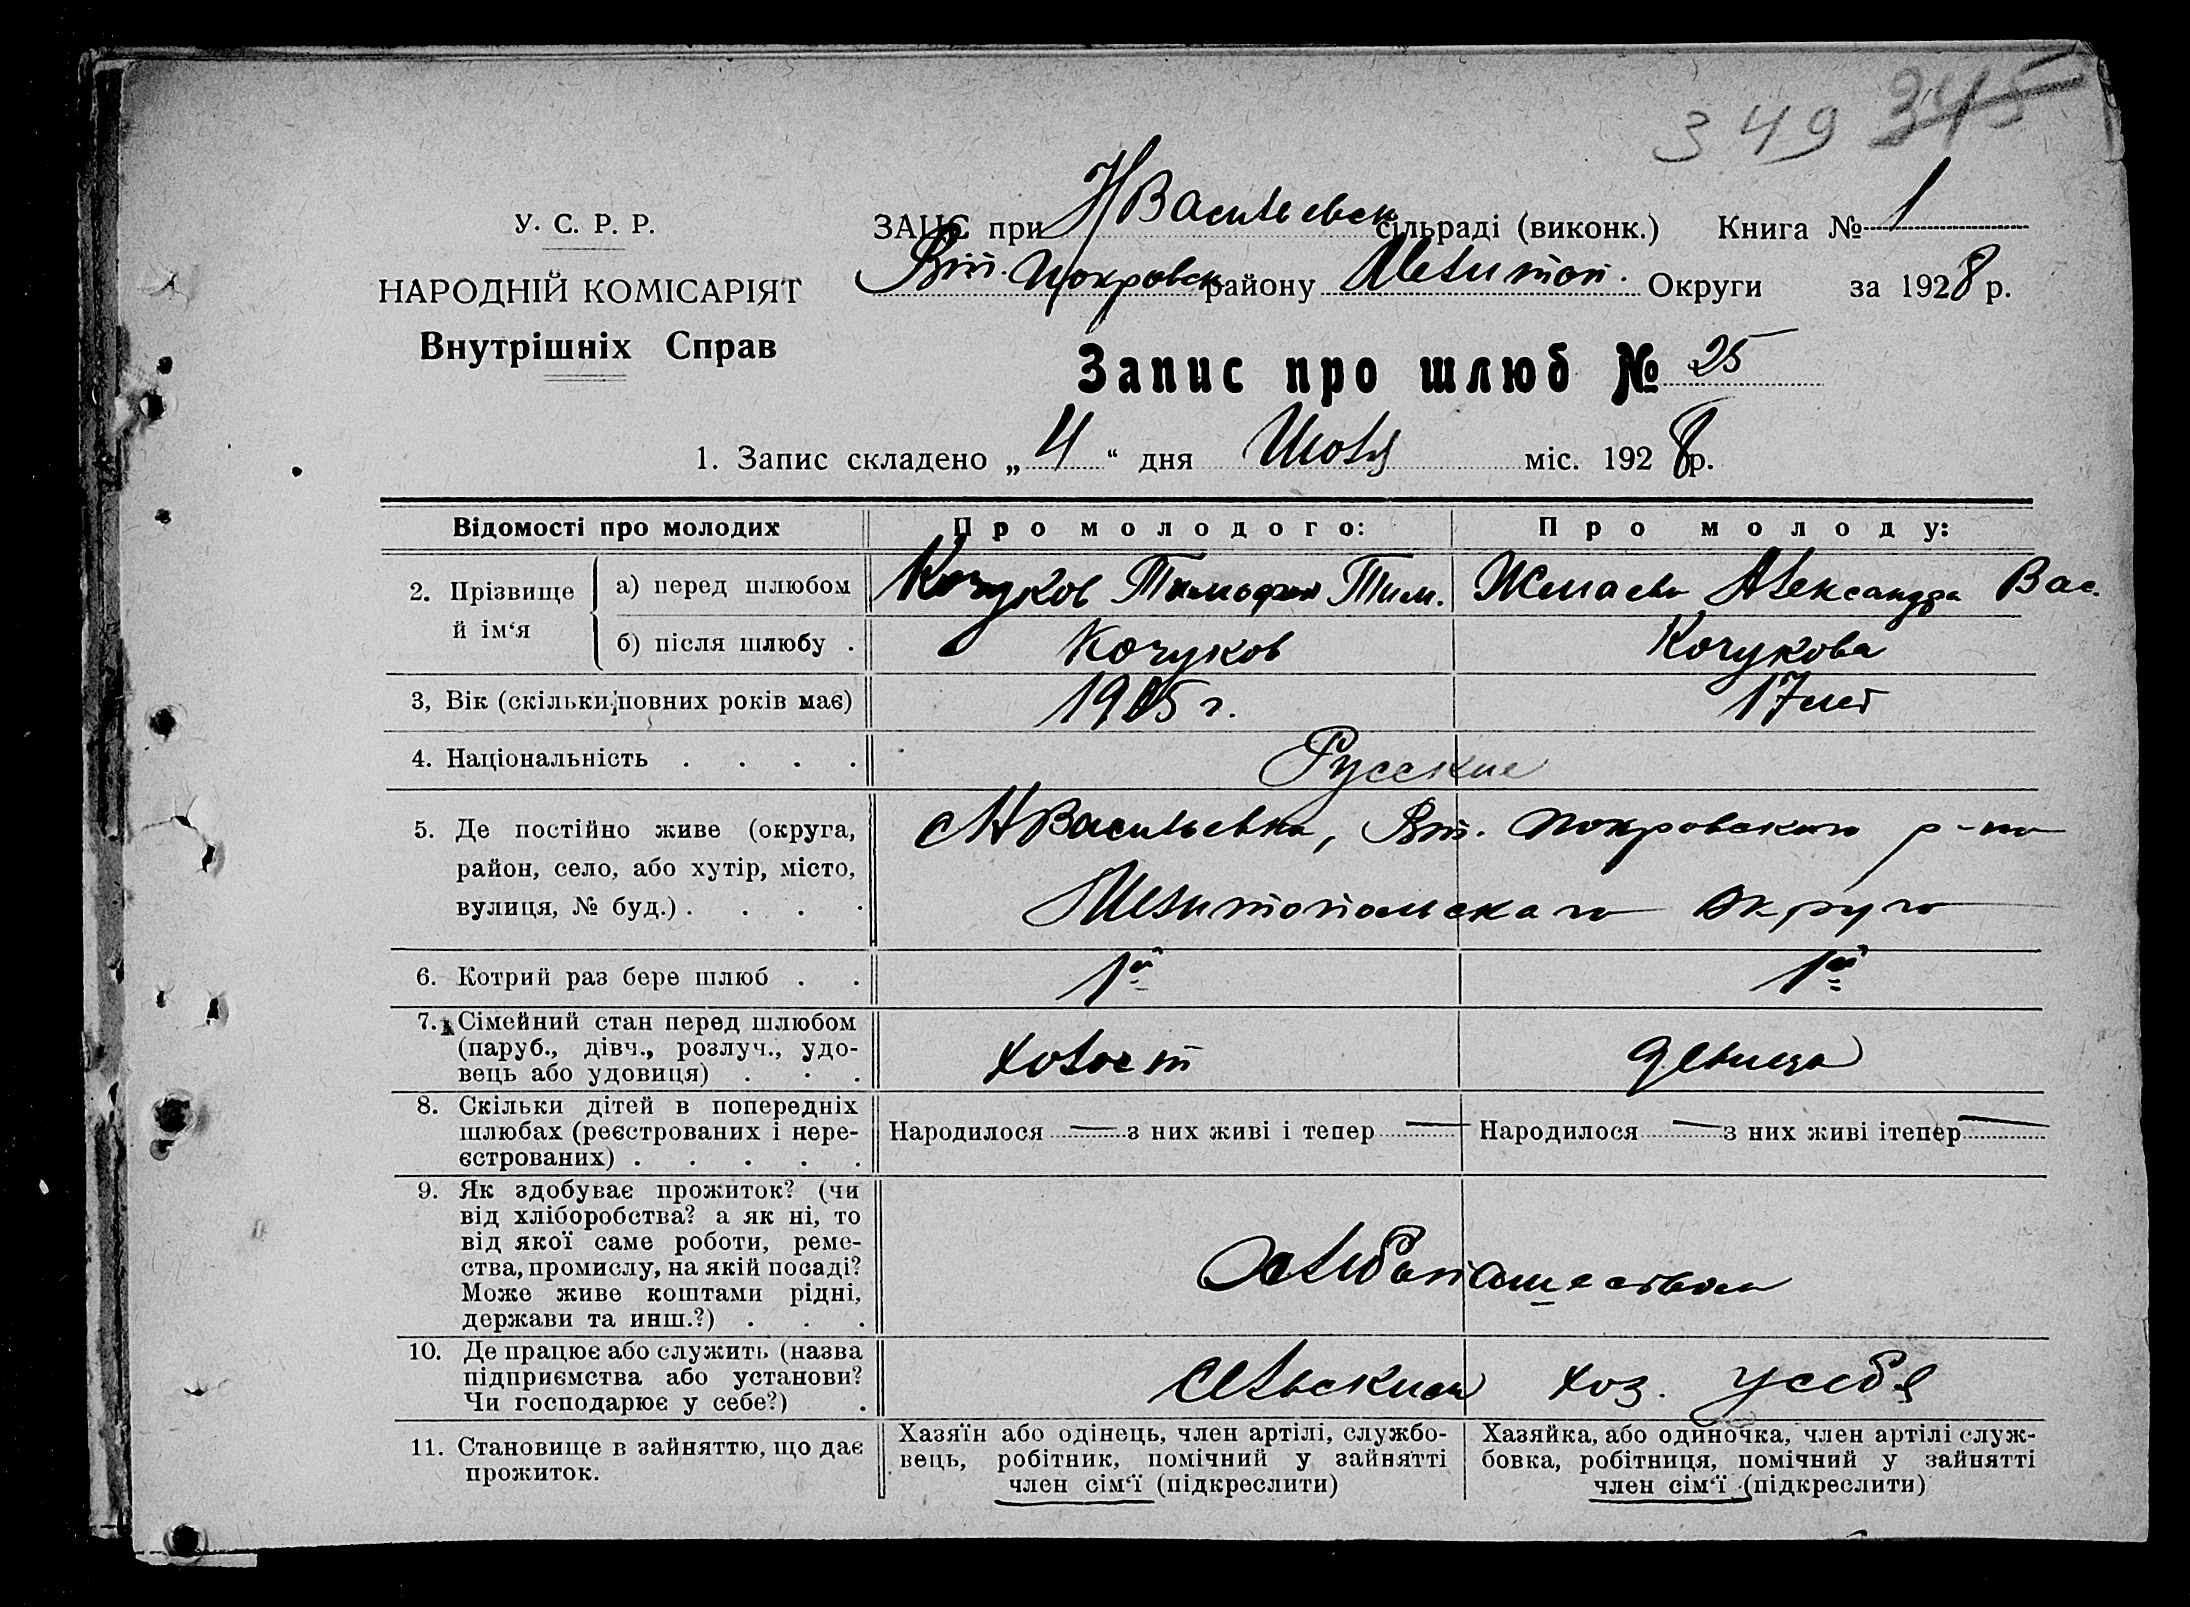 349 345
У. С. Р. Р.
НАРОДНІЙ КОМІСАРІЯТ
Внутрішніх Справ
ЗАЦС при НВасильевск сільраді (виконк.) Книга № 1
Вт. Покровск району Мелитоп. Округи за 1928 р.
Запис про шлюб № 25
1. Запис складено „4“ дня Июля міс. 1928 р.
Відомості про молодих Про молодого: Про молоду:
2. Прізвище й ім‘я
а) перед шлюбом Кочуков Тим. Александра Вас.
б) після шлюбу . Кочуков Кочукова
3, Вік (скільки повних років має) 1905 г. 17 лет
4. Національність . . . . Русские
5. Де постійно живе (округа, с НВасильевка, Вт. Покровского р-на
район, село, або хутір, місто,
вулиця, № буд.) . . . . Мелитопольскаго Округа
6. Котрий раз бере шлюб . . 1й 1й
7. Сімейний стан перед шлюбом
(паруб., дівч., розлуч., удо- холост девица
вець або удовиця) . . .
8. Скільки дітей в попередніх
шлюбах (реєстрованих і нере- Народилося — з них живі і тепер — Народилося — з них живі ітепер —
єстрованих) . . . . .
9. Як здобуває прожиток? (чи
від хліборобства? а як ні, то
від якої саме роботи, реме-
ства, промислу, на якій посаді? Хлебопашеством
Може живе коштами рідні,
держави та инш.?) . . .
10. Де працює або служить (назва
підприємства або установи? Сельским хоз. у себя
Чи господарює у себе?) .
11. Становище в зайняттю, що дає
прожиток.
Хазяїн або одінець, член артілі, службо-
вець, робітник, помічний у зайнятті
член сім‘ї (підкреслити)
Хазяйка, або одиночка, член артілі служ-
бовка, робітниця, помічний у зайнятті
член сім‘ї (підкреслити)